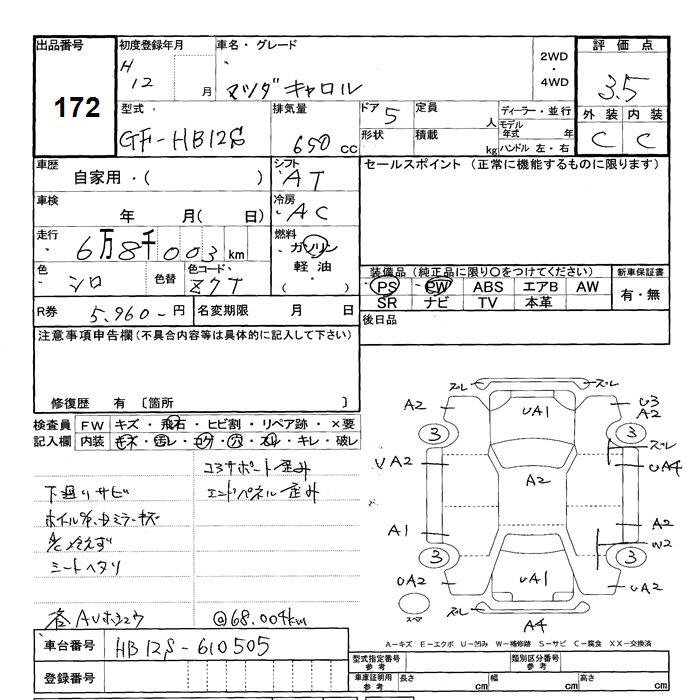 出品番号 初度登録年月 車名・グレード 2WD・4WD 評価点
172
H12 月 マツダキャロル 3.5
型式 排気量 ドア 定員 ディーラー・並行 外装 内装
GF-HB12S 650cc 5 人 モデル年式 年 C C
形状 積載 kg ハンドル 左・右
車歴 シフト セールスポイント (正常に機能するものに限ります)
自家用・( ) AT
車検 冷房
年 月( 日) AC
走行 燃料
6万8千003km ガソリン
軽油
色 色替 色コード 装備品(純正品に限り〇をつけてください) 新車保証書
シロ Z7T PS PW ABS エアB AW 有・無
SR ナビ TV 本革
R券 5,960-円 名変期限 月 日 後日品
注意事項申告欄(不具合内容等は具体的に記入して下さい)
修復歴 有 〔箇所 〕
検査員 FW キズ・飛石・ヒビ割・リペア跡・×要
記入欄 内装 キズ・汚レ・コゲ・穴・スレ・キレ・破レ
コアサポート歪み
下廻りサビ エンドパネル歪み
A/C冷えず
シートヘタリ
@68.004km
車台番号 HB12S-610505
登録番号
ズレ ズレ
A2 UA1 U3
A2
3 3
ズレ
VA2 A2 UA4
A1 A2
W2
3 3
UA2 UA1 UA2
スペア ズレ A4
A-キズ E-エクボ U-凹み W-補修跡 S-サビ C-腐食 XX-交換済
型式指定番号 参考 類別区分番号 参考
車庫証明用 参考 長さ cm 幅 cm 高さ cm